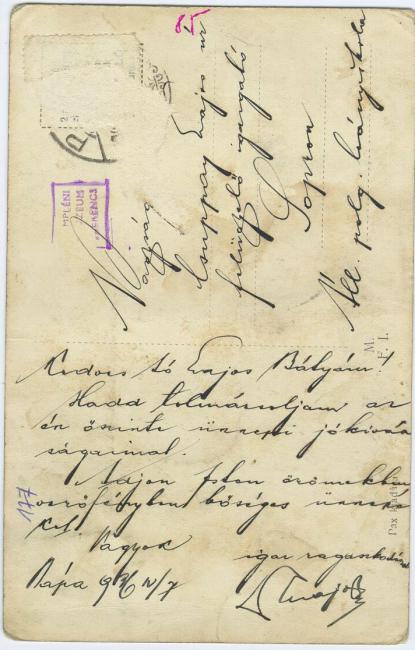 Nagyság
Csuppay Lajos úr
felügyelő igazgató
Sopron
Áll. polg. leányiskola
MPLÉNI
ZEUM
ERENCS
M.
F. I.
Kedves jó Lajos Bátyám!
Hadd tolmácsoljam az
én őszinte ünnepi jókíván
ságaimat.
Adjon Isten örömekben
verőfényben bőséges ünnepe
ket.
Vagyok
igaz ragaszkodással
Pápa 936 IV/7
177
Pax